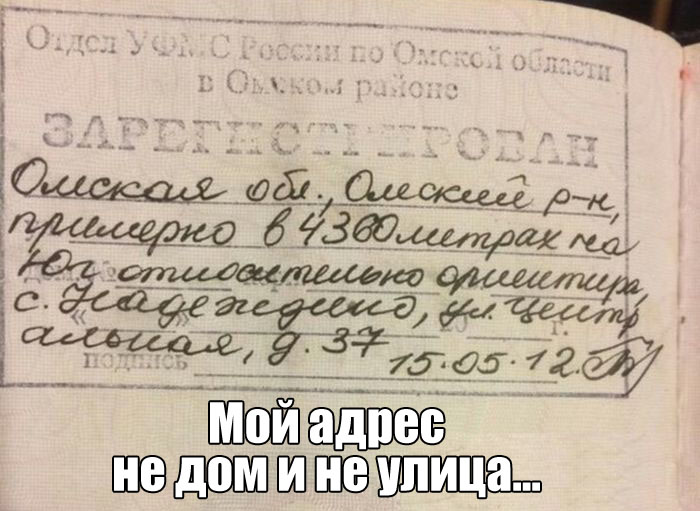 Отдел УФМС России по Омской области
в Омском районе
ЗАРЕГИСТРИРОВАН
Омская обл., Омский р-н,
примерно в 4360 метрах на
Юг относительно ориентира,
с. Надеждино, ул. Центр
альная, д. 37
подпись 15.05.12.
Мой адрес
не дом и не улица...